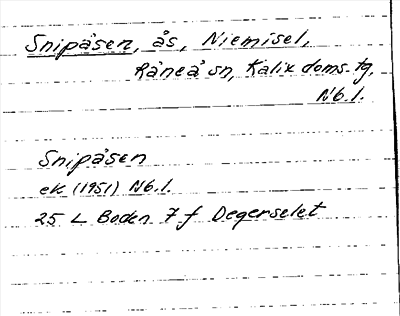 Snipåsen, ås, Niemisel,
Råneå sn, Kalix doms.tg,
Nb.l.
Snipåsen
ek (1951) Nb.l.
25 L Boden 7 f Degerselet